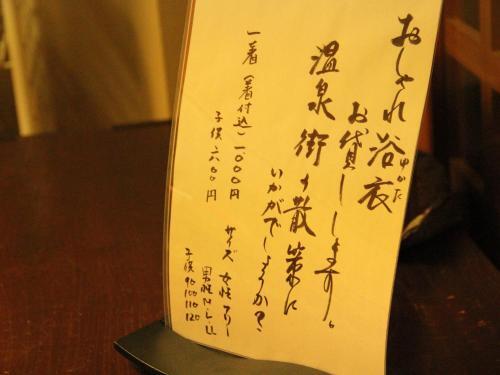 おしゃれ浴衣
ゆかた
お貸しします。
温泉街の散策に
いかがでしょうか?
一着(着付込)一〇〇〇円
子供 六〇〇円
サイズ 女性 フリー
男性 M L LL
子供 90 100 110 120